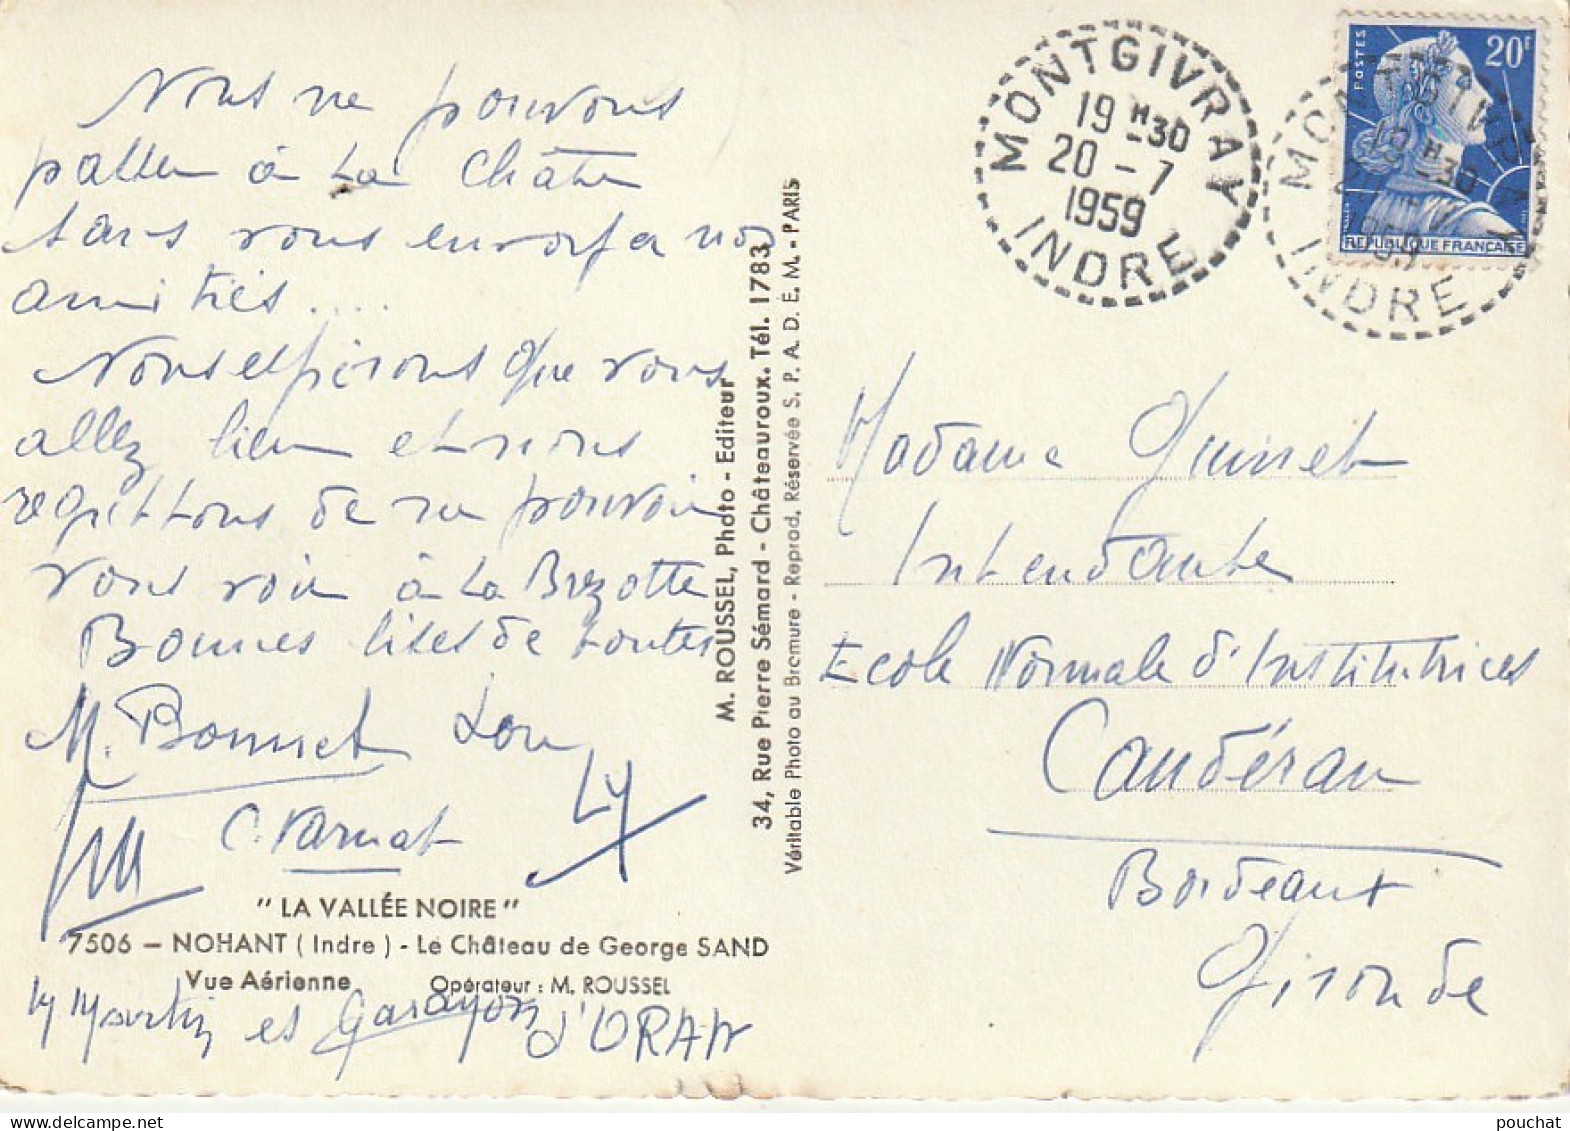 Nous ne pouvons
passer à La Châtre
sans vous envoyer nos
amitiés....
Nous espérons que vous
allez bien et nous
regrettons de ne pouvoir
vous voir à La
Bonnes bises de toutes
M. Bonnet Lou
C. Varnat Ly
"LA VALLÉE NOIRE"
7506 — NOHANT (Indre) - Le Château de George SAND
Vue Aérienne Opérateur : M. ROUSSEL
M Martin et Garayon d'ORAN
M. ROUSSEL, Photo - Editeur
34, Rue Pierre Sémard - Châteauroux. Tél. 1783
Véritable Photo au Bromure - Reprod. Réservée S. P. A. D. E. M. - PARIS
MONTGIVRAY
19 H 30
20 - 7
1959
INDRE
POSTES
20F
REPUBLIQUE FRANÇAISE
MONTGIVRAY
19 H 30
INDRE
Madame Guinet
Intendante
Ecole Normale d'Institutrices
Caudéran
Bordeaux
Gironde
pouchat